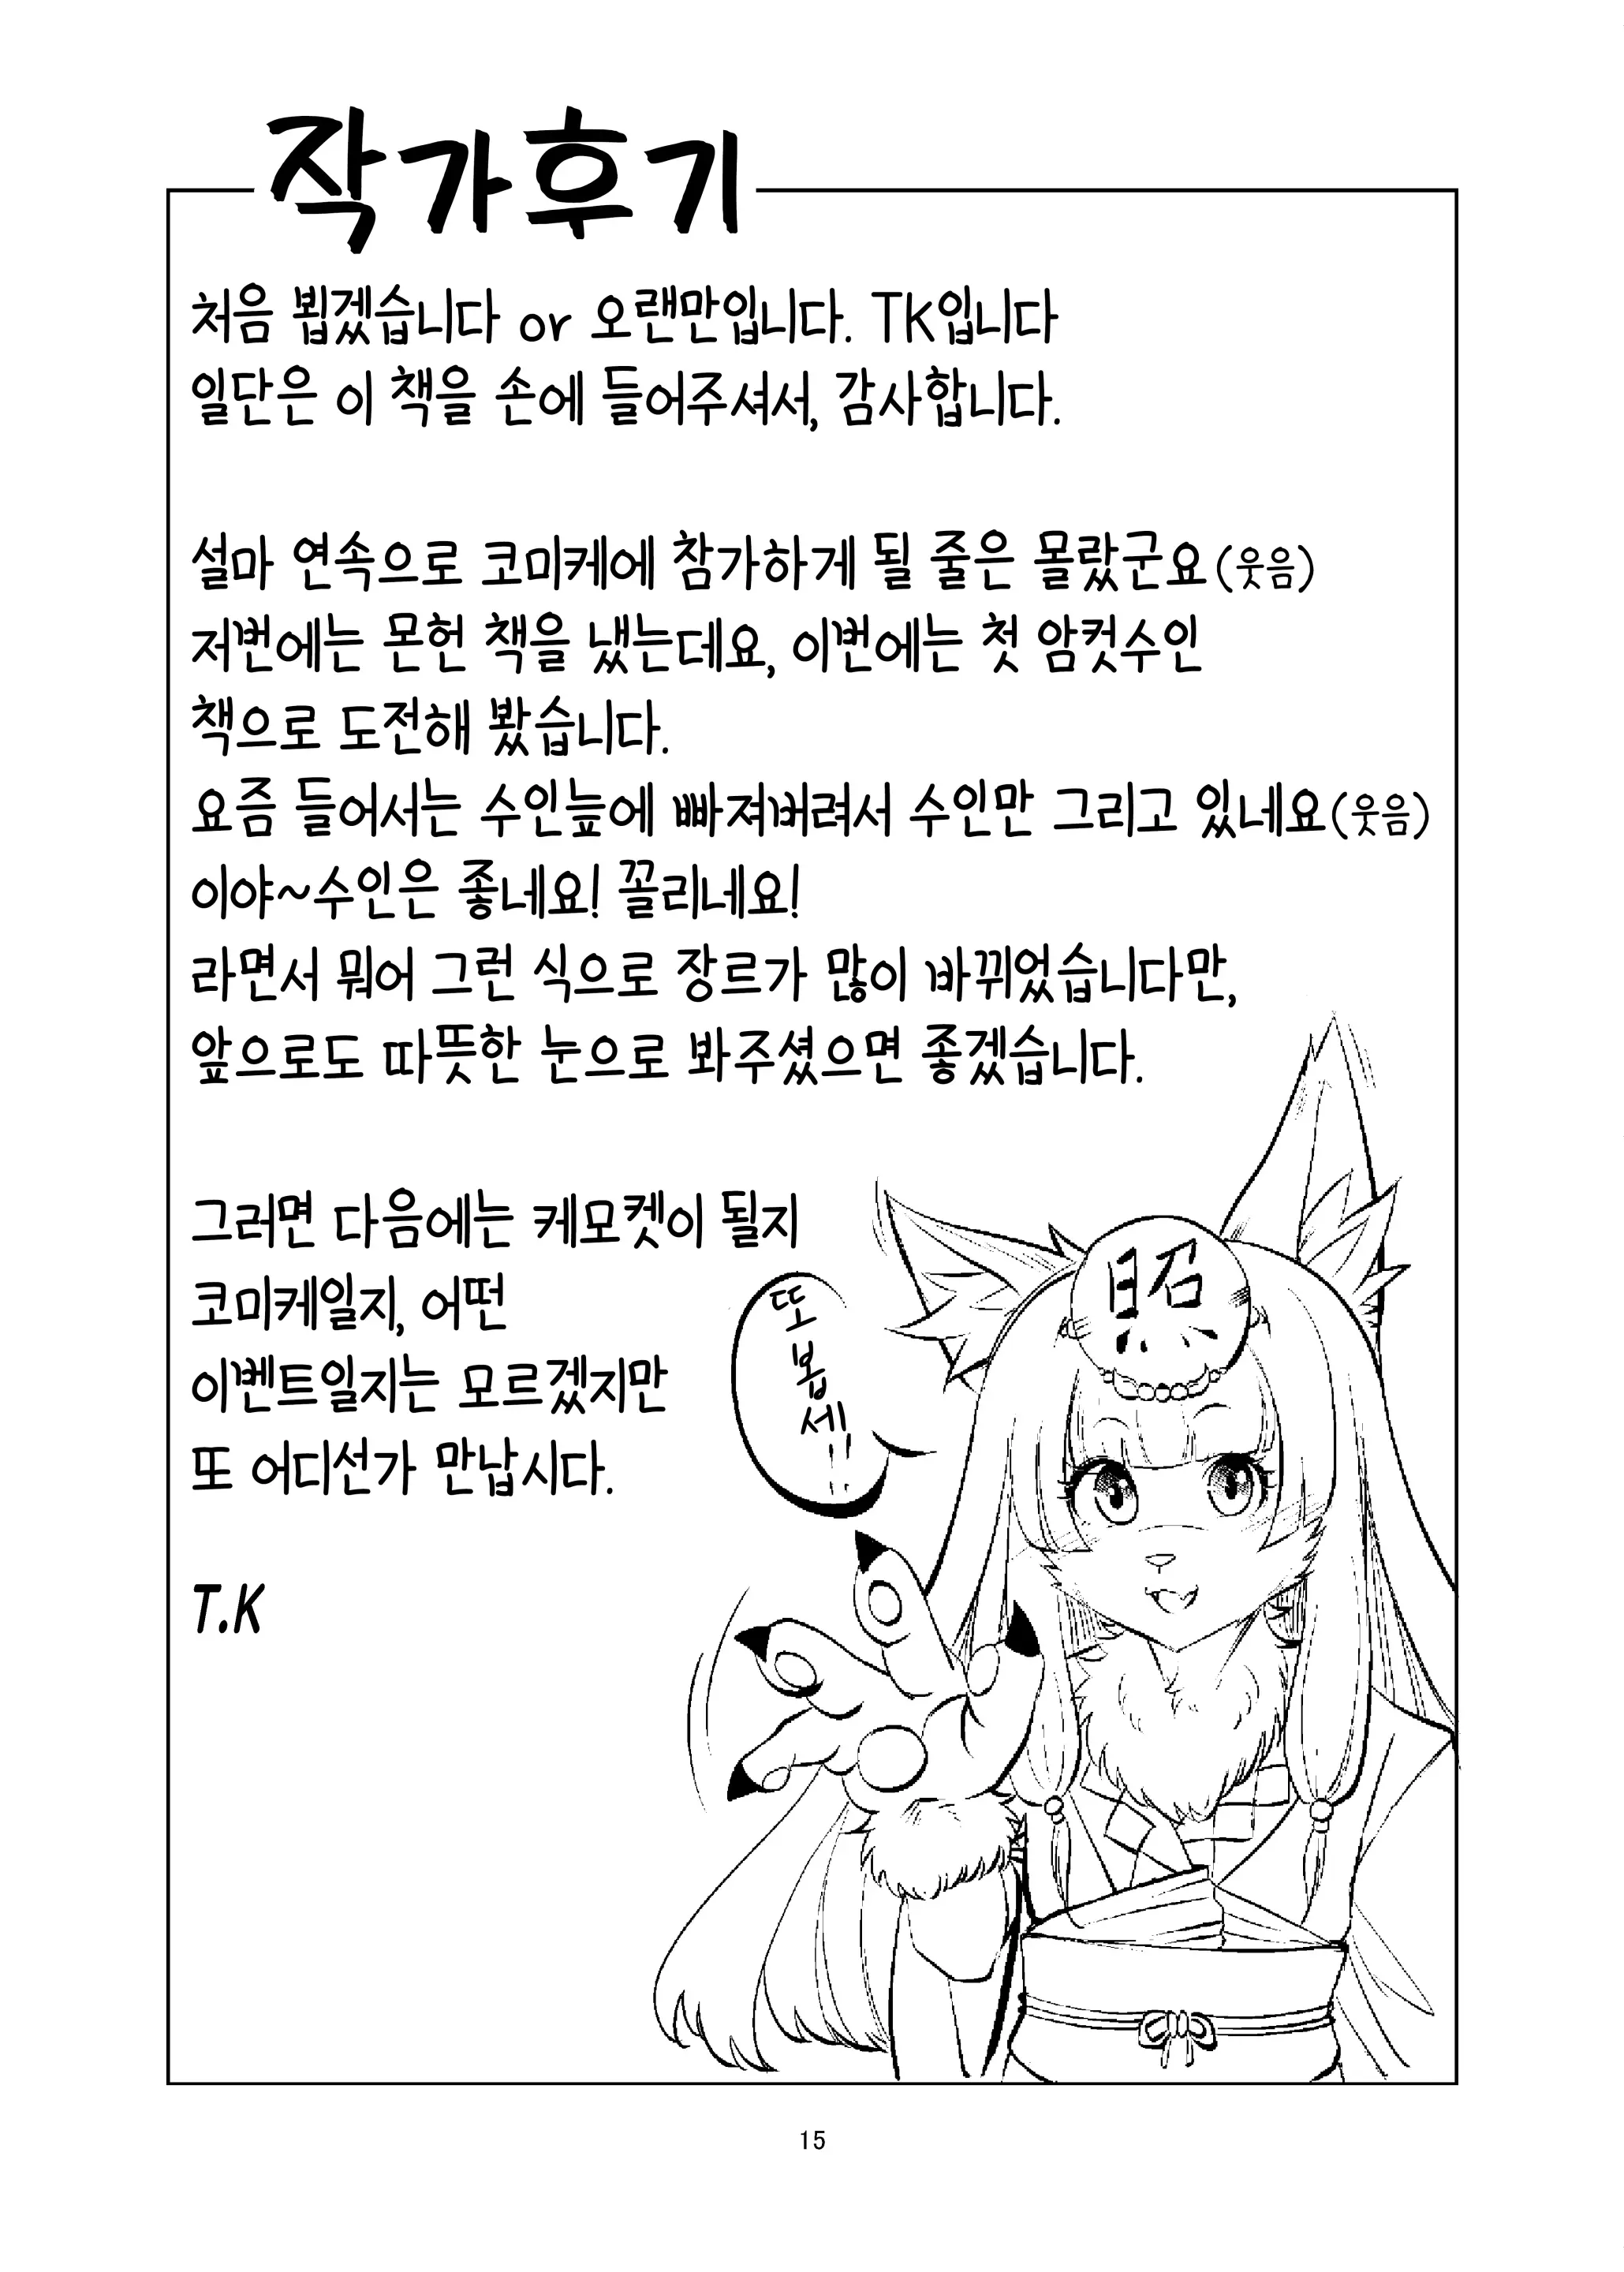 작가후기
처음 뵙겠습니다 or 오랜만입니다. TK입니다
일단은 이 책을 손에 들어주셔서, 감사합니다.
설마 연속으로 코미케에 참가하게 될 줄은 몰랐군요(웃음)
저번에는 몬헌 책을 냈는데요, 이번에는 첫 암컷수인
책으로 도전해 봤습니다.
요즘 들어서는 수인늪에 빠져버려서 수인만 그리고 있네요(웃음)
이야~수인은 좋네요! 꼴리네요!
라면서 뭐어 그런 식으로 장르가 많이 바뀌었습니다만,
앞으로도 따뜻한 눈으로 봐주셨으면 좋겠습니다.
그러면 다음에는 케모켓이 될지
코미케일지, 어떤
이벤트일지는 모르겠지만
또 어디선가 만납시다.
T.K
또
봅
세!!
照
15